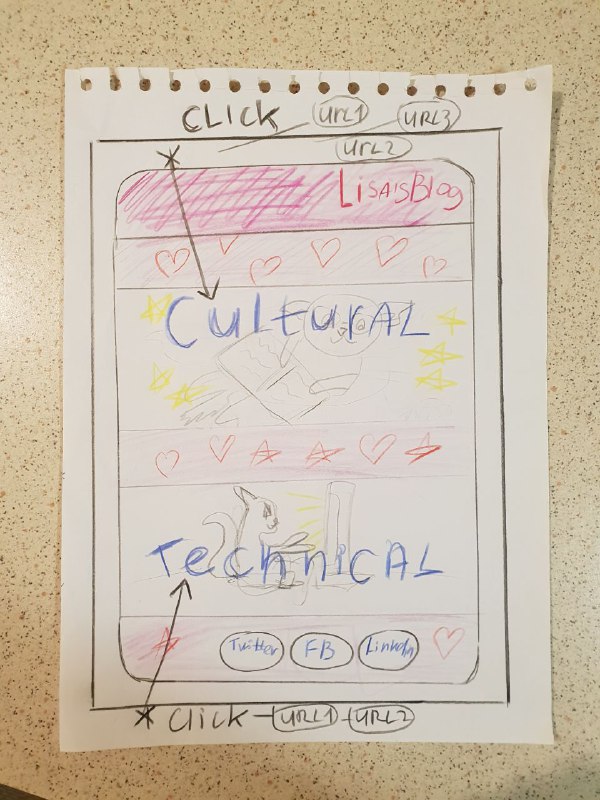 CLICK URL1 URL3
URL2
Lisa'sBlog
CulturAL
TechniCAL
Twitter FB LinkedIn
Click URL1 URL2